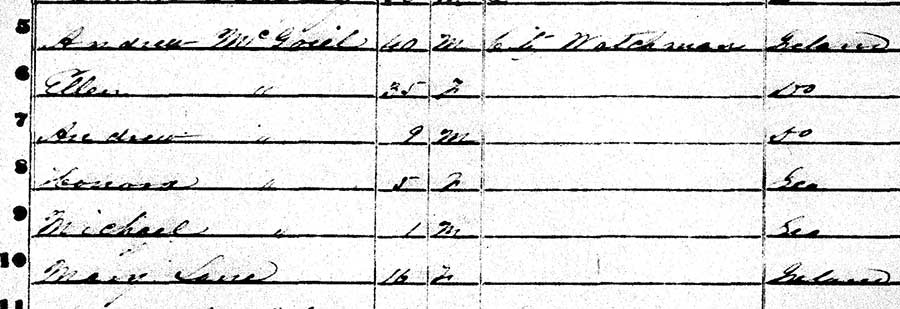 5 Andrew McGoiel 40 M City Watchman Ireland
6 Ellen " 35 F Do
7 Andrew " 9 M Do
8 Honora " 5 F Geo
9 Michael " 1 M Geo
10 Mary Lane 16 F Ireland
11